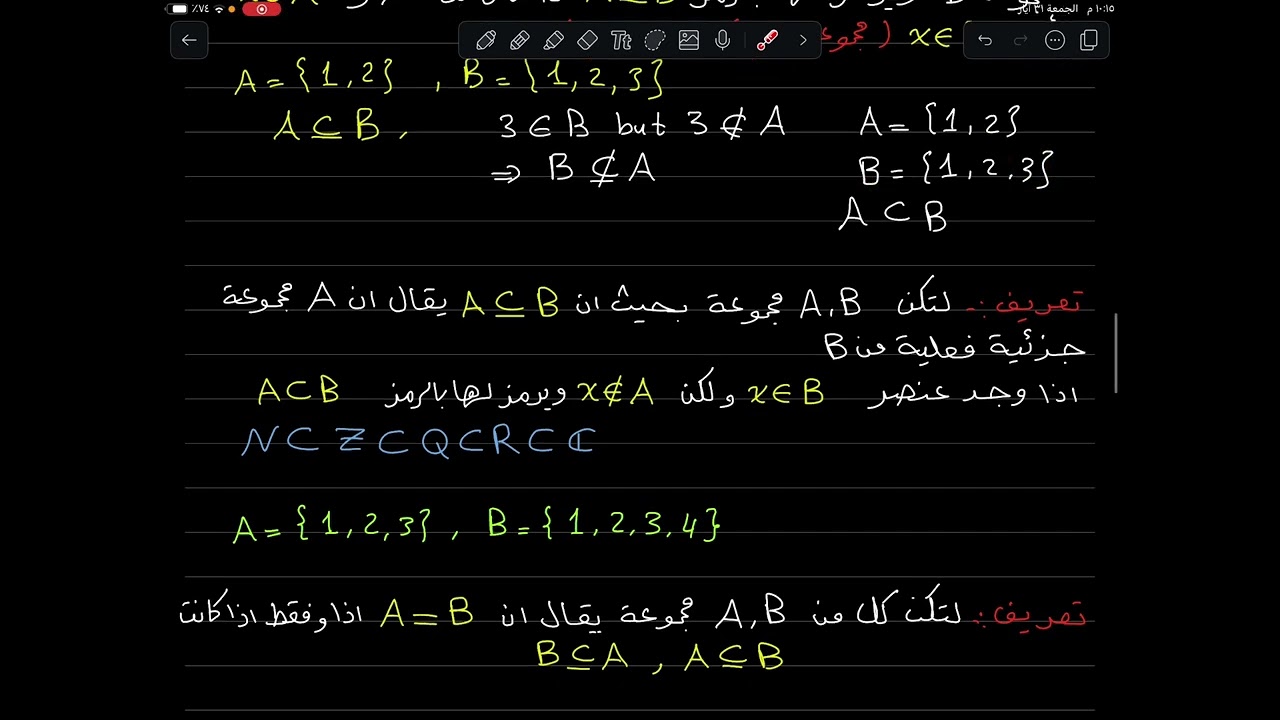 ١٠:١٥ م الجمعة ٣١ أيار ٪٧٤
x∈
Tt
A = {1,2} , B = {1,2,3}
A ⊆ B , 3 ∈ B but 3 ∉ A A = {1,2}
⇒ B ⊈ A B = {1,2,3}
A ⊂ B
تعريف :- لتكن A,B مجموعة بحيث ان A ⊆ B يقال ان A مجموعة
جزئية فعلية من B
اذا وجد عنصر x∈B ولكن x∉A ويرمز لها بالرمز A⊂B
N ⊂ Z ⊂ Q ⊂ R ⊂ ℂ
A = {1,2,3} , B = {1,2,3,4}
تعريف :- لتكن كل من A,B مجموعة يقال ان A = B اذا وفقط اذا كانت
B ⊆ A , A ⊆ B